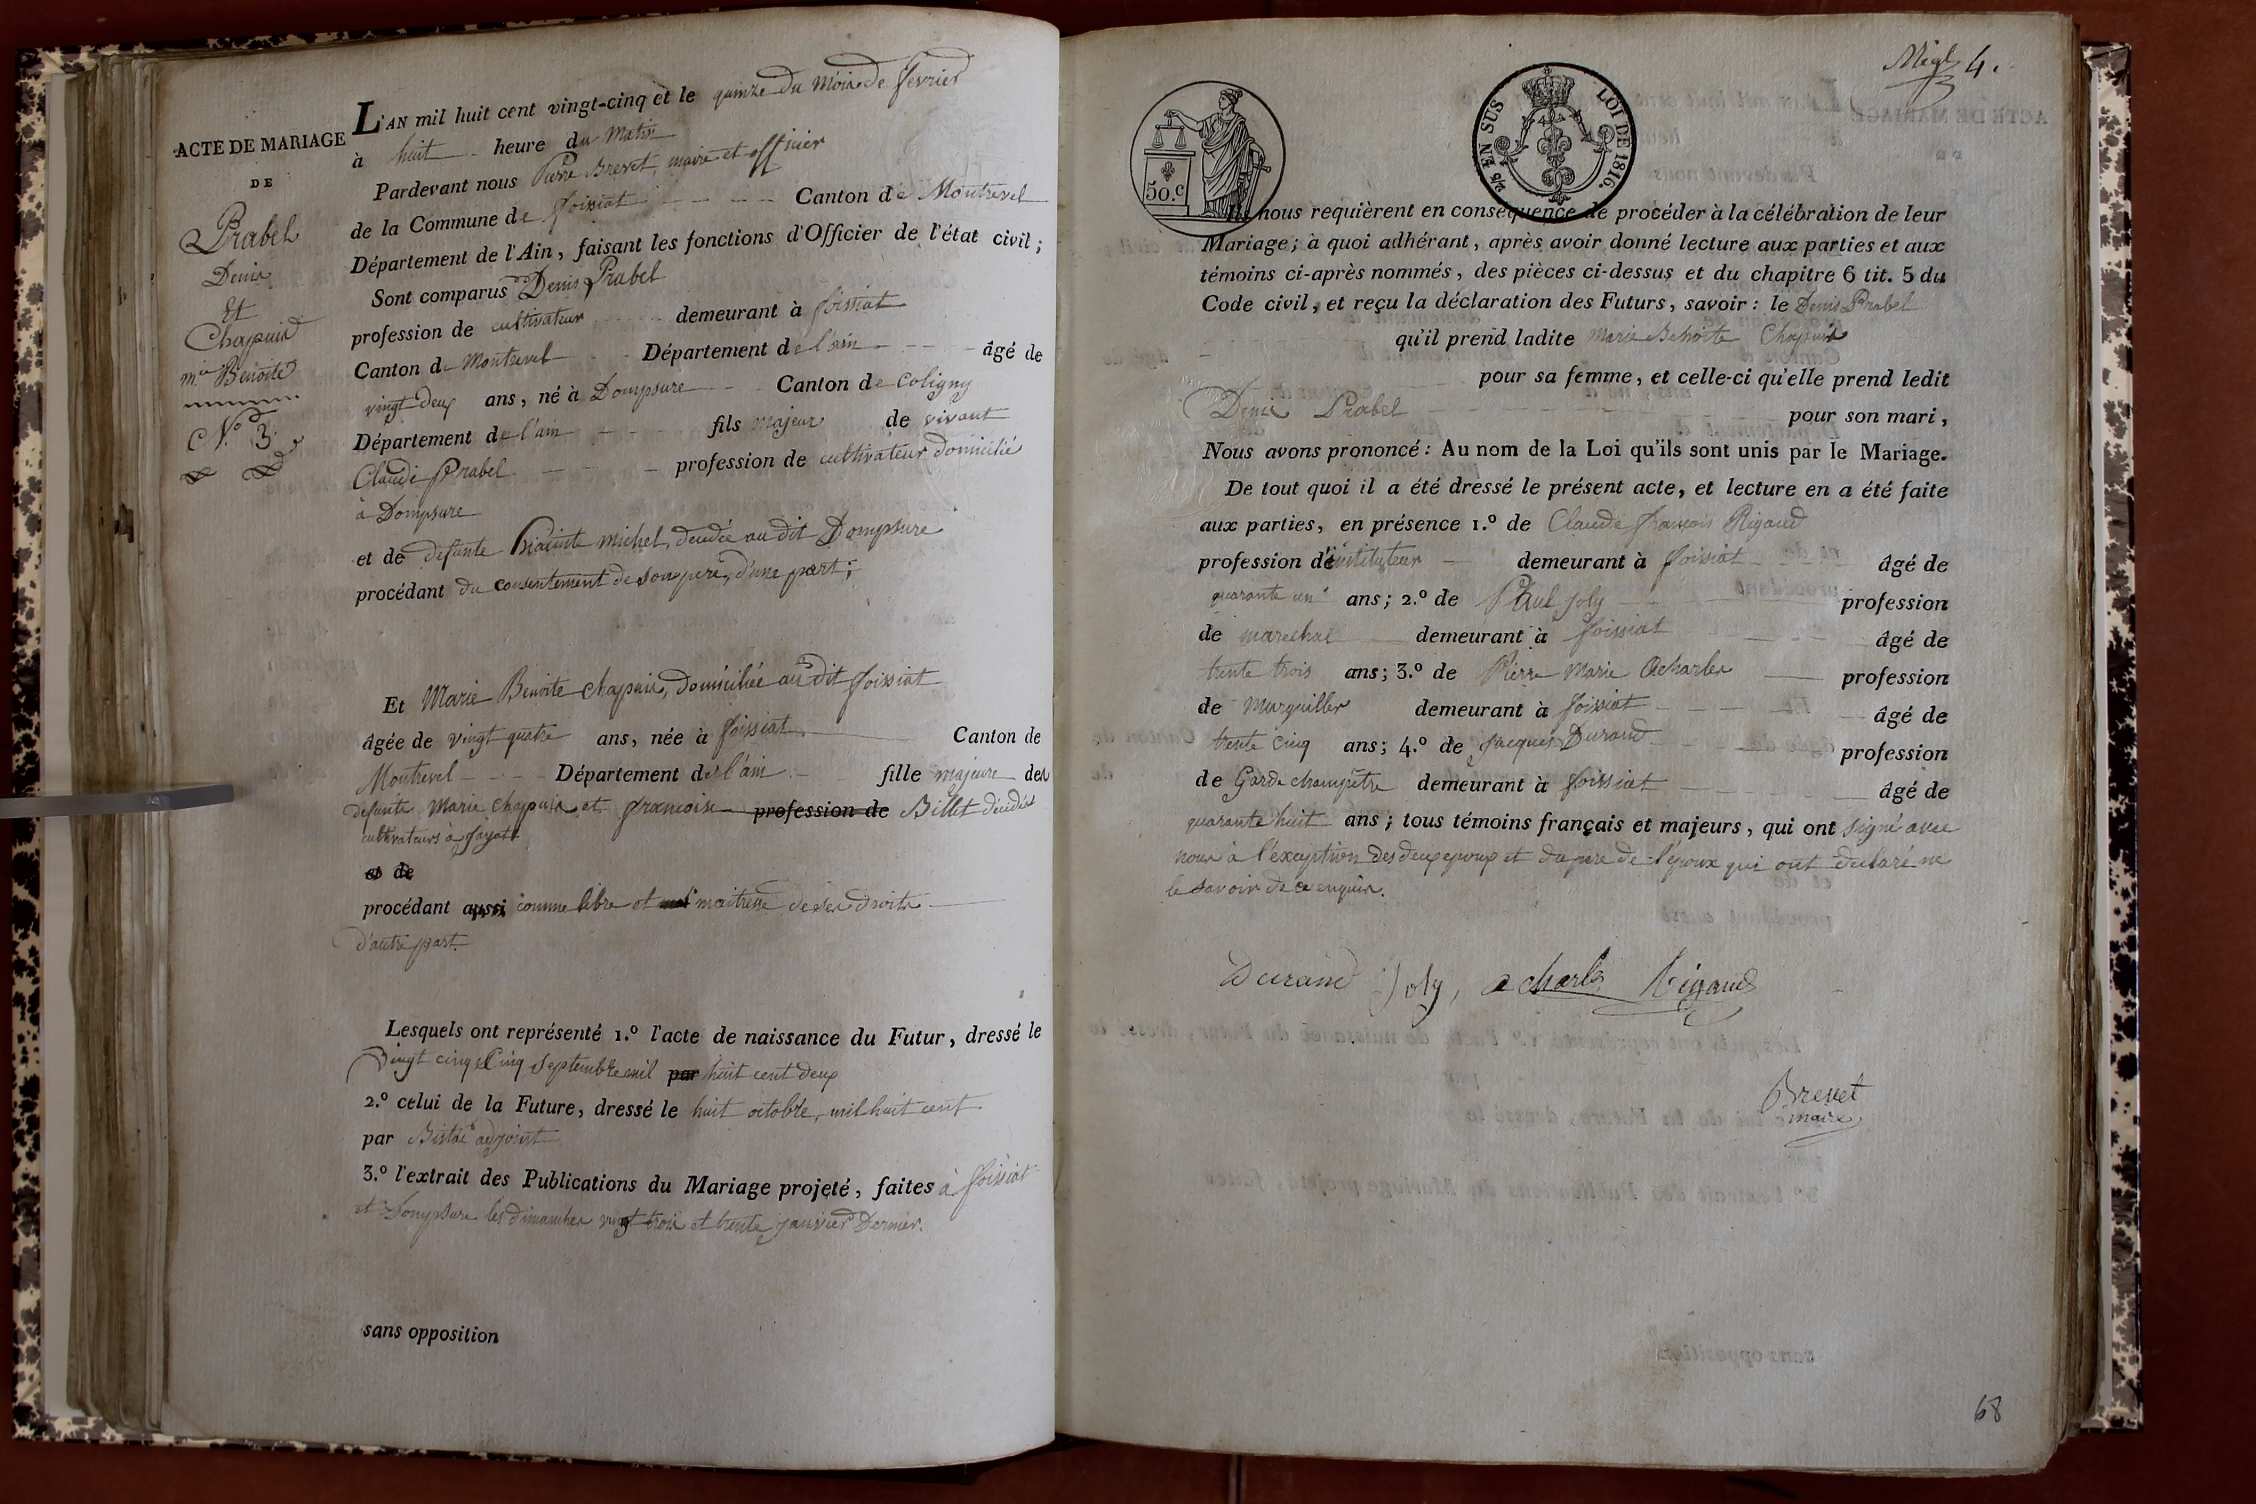 ACTE DE MARIAGE
DE
Prabel
Denis
Et
Chapuis
mie Benoite
N.o 3
L'AN mil huit cent vingt-cinq et le quinze du mois de fevrier
à huit heure du Matin
Pardevant nous Pierre Brevet, maire et officier
de la Commune de foissiat Canton de Montrevel
Département de l'Ain, faisant les fonctions d'Officier de l'état civil ;
Sont comparus Denis Prabel
profession de cultivateur demeurant à foissiat
Canton de Montrevel Département de l'ain âgé de
vingt deux ans, né à Dompsure Canton de Coligny
Département de l'ain fils majeur de vivant
Claude Prabel profession de cultivateur domicilié
à Dompsure
et de defunte hiacinte michel, decedée au dit Dompsure
procédant du consentement de son pere, d'une part;
Et Marie Benoite chapuis, domiciliée au dit foissiat
âgée de vingt quatre ans, née à foissiat Canton de
Montrevel Département de l'ain fille majeure des
defunts Marie Chapuis et francoise profession de Billet décédés
cultivateurs à
et de
procédant aussi comme libre et maitresse de ses droits
d'autre part.
Lesquels ont représenté 1.o l'acte de naissance du Futur, dressé le
Vingt cinq septembre mil par huit cent deux
2.o celui de la Future, dressé le huit octobre, mil huit cent
par adjoint
3.o l'extrait des Publications du Mariage projeté, faites à foissiat
et Dompsure les dimanches vingt trois et trente janvier Dernier.
sans opposition
4.
50.c
EN SUS
LOI DE 1816.
nous requièrent en conséquence de procéder à la célébration de leur
Mariage; à quoi adhérant, après avoir donné lecture aux parties et aux
témoins ci-après nommés, des pièces ci-dessus et du chapitre 6 tit. 5 du
Code civil, et reçu la déclaration des Futurs, savoir : le Denis Prabel
qu'il prend ladite Marie Benoite Chapuis
pour sa femme, et celle-ci qu'elle prend ledit
Denis Prabel pour son mari,
Nous avons prononcé : Au nom de la Loi qu'ils sont unis par le Mariage.
De tout quoi il a été dressé le présent acte, et lecture en a été faite
aux parties, en présence 1.o de Claude françois Rigaud
profession d'instituteur demeurant à foissiat âgé de
quarante un ans; 2.o de Paul joly profession
de marechal demeurant à foissiat âgé de
trente trois ans; 3.o de Pierre Marie Acharles profession
de Marguiller demeurant à foissiat âgé de
trente cinq ans; 4.o de Jacques Durand profession
de Garde champêtre demeurant à foissiat âgé de
quarante huit ans; tous témoins français et majeurs, qui ont signé avec
nous à l'exception des deux epoux et du pere de l'epoux qui ont déclaré ne
le savoir de ce enquis.
Durand joly, acharles Rigaud
Brevet
maire
68